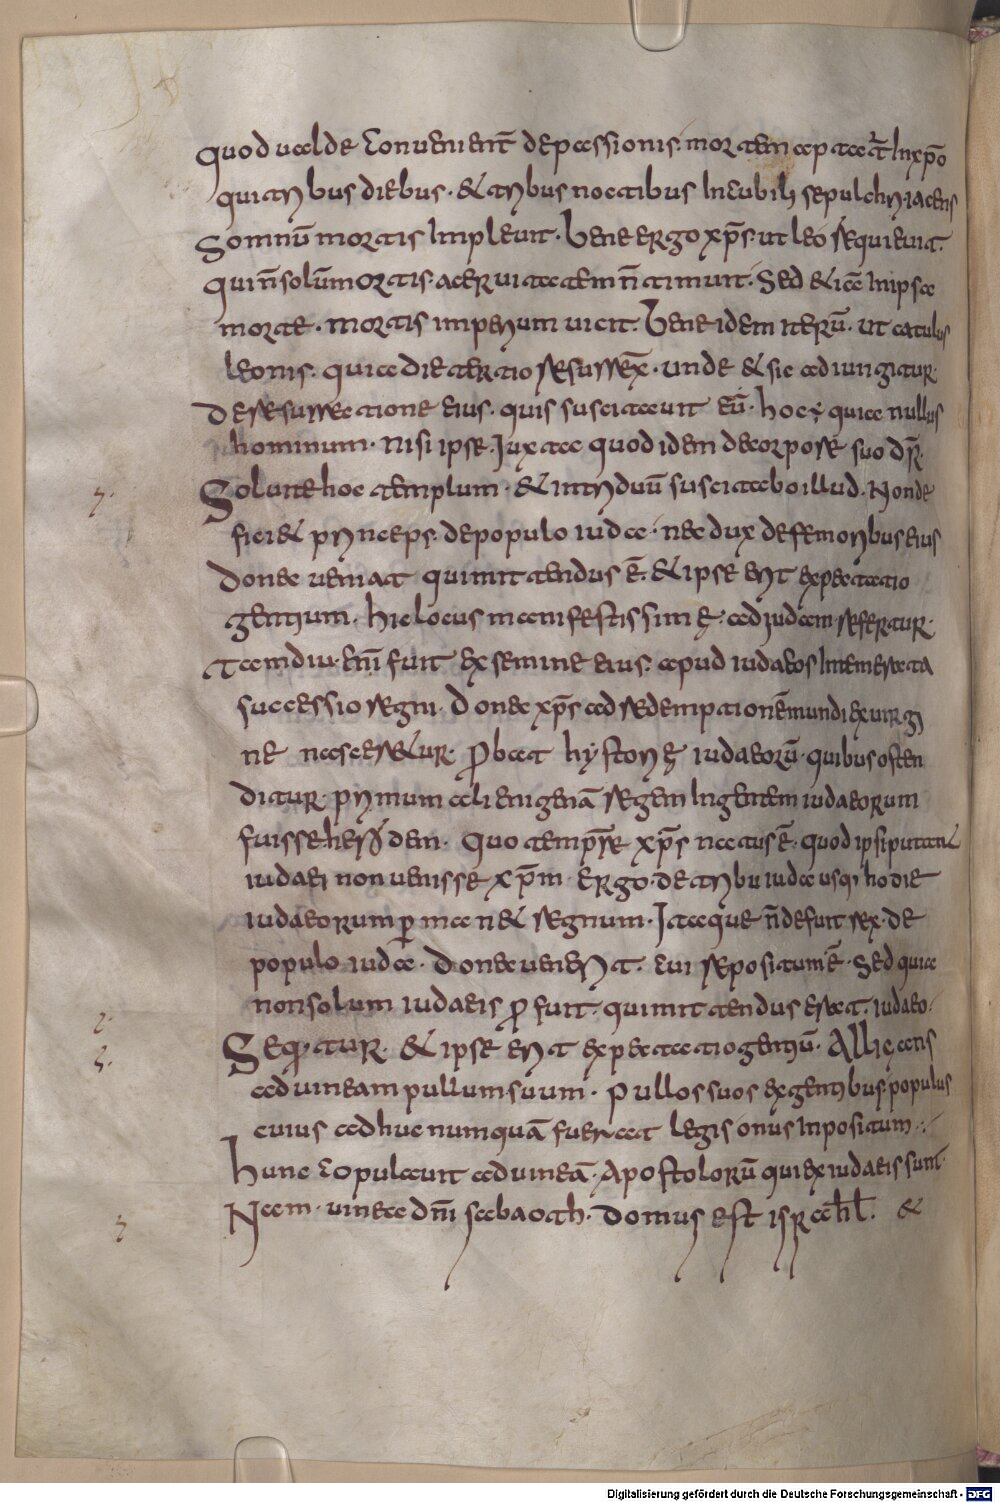 quod ualde conuenient de passionis· mortem captat̄ In xp̄o
qui tribus diebus· & tribus noctibus In cubili sepulchri iacens
somnū mortis Impleuit· bene ergo xp̄s· ut leo requieuit·
qui ñ solū mortis· aceruitatem ñ timuit· Sed & iā In ipsa
morte· mortis imperium uicit· bene idem iterū· ut catulus
leonis· quia die tertio resurrex̄· unde & sic adiungitur·
de resurrectione eius· quis suscitauit eū· hoc ę quia nullus
hominum· nisi ipse· Iuxta quod idem de corpore suo dr̄·
Solu­ite hoc templum· & in triduū suscitabo illud· Non de
ficiet princeps de populo iuda· nec dux de femoribus eius
donec ueniat qui mittendus ē· & ipse erit expectatio
gentium· hic locus manifestissimę· ad iudam refertur·
Tamdiu· enī fuit ex semine eius· apud iudaeos Intemerata
successio regni· Donec xp̄s ad redemptionē mundi ex uirgi
ne nasceretur· p̄bat hystorię iudaeorū· quibus osten
ditur· primum alienigenā regem In gentem iudaeorum
fuisse herodem· quo tempr̄e xp̄s natus ē· quod ipsi putant
iudaei non uenisse xp̄m· Ergo· de tribu iuda usq; hodie
iudaeorum p̄manet regnum· Itaque ñ defuit rex· de
populo iuda· Donec uenerit· cui repositum ē· Sed quia
non solum iudaeis p̄fuit· qui mittendus erat· iudaeo·
Seq̄tur· & ipse erit expectatio gentiū· Alligans
ad uineam pullum suum· Pullos suos ex gentibus populus
cuius adhuc numquā fuerat legis onus Inpositum·
hunc copulauit ad uineā· Apostolorū qui ex iudaeis sunt·
Nam· uinea dn̄i sabaoth· domus est israhl̄· &